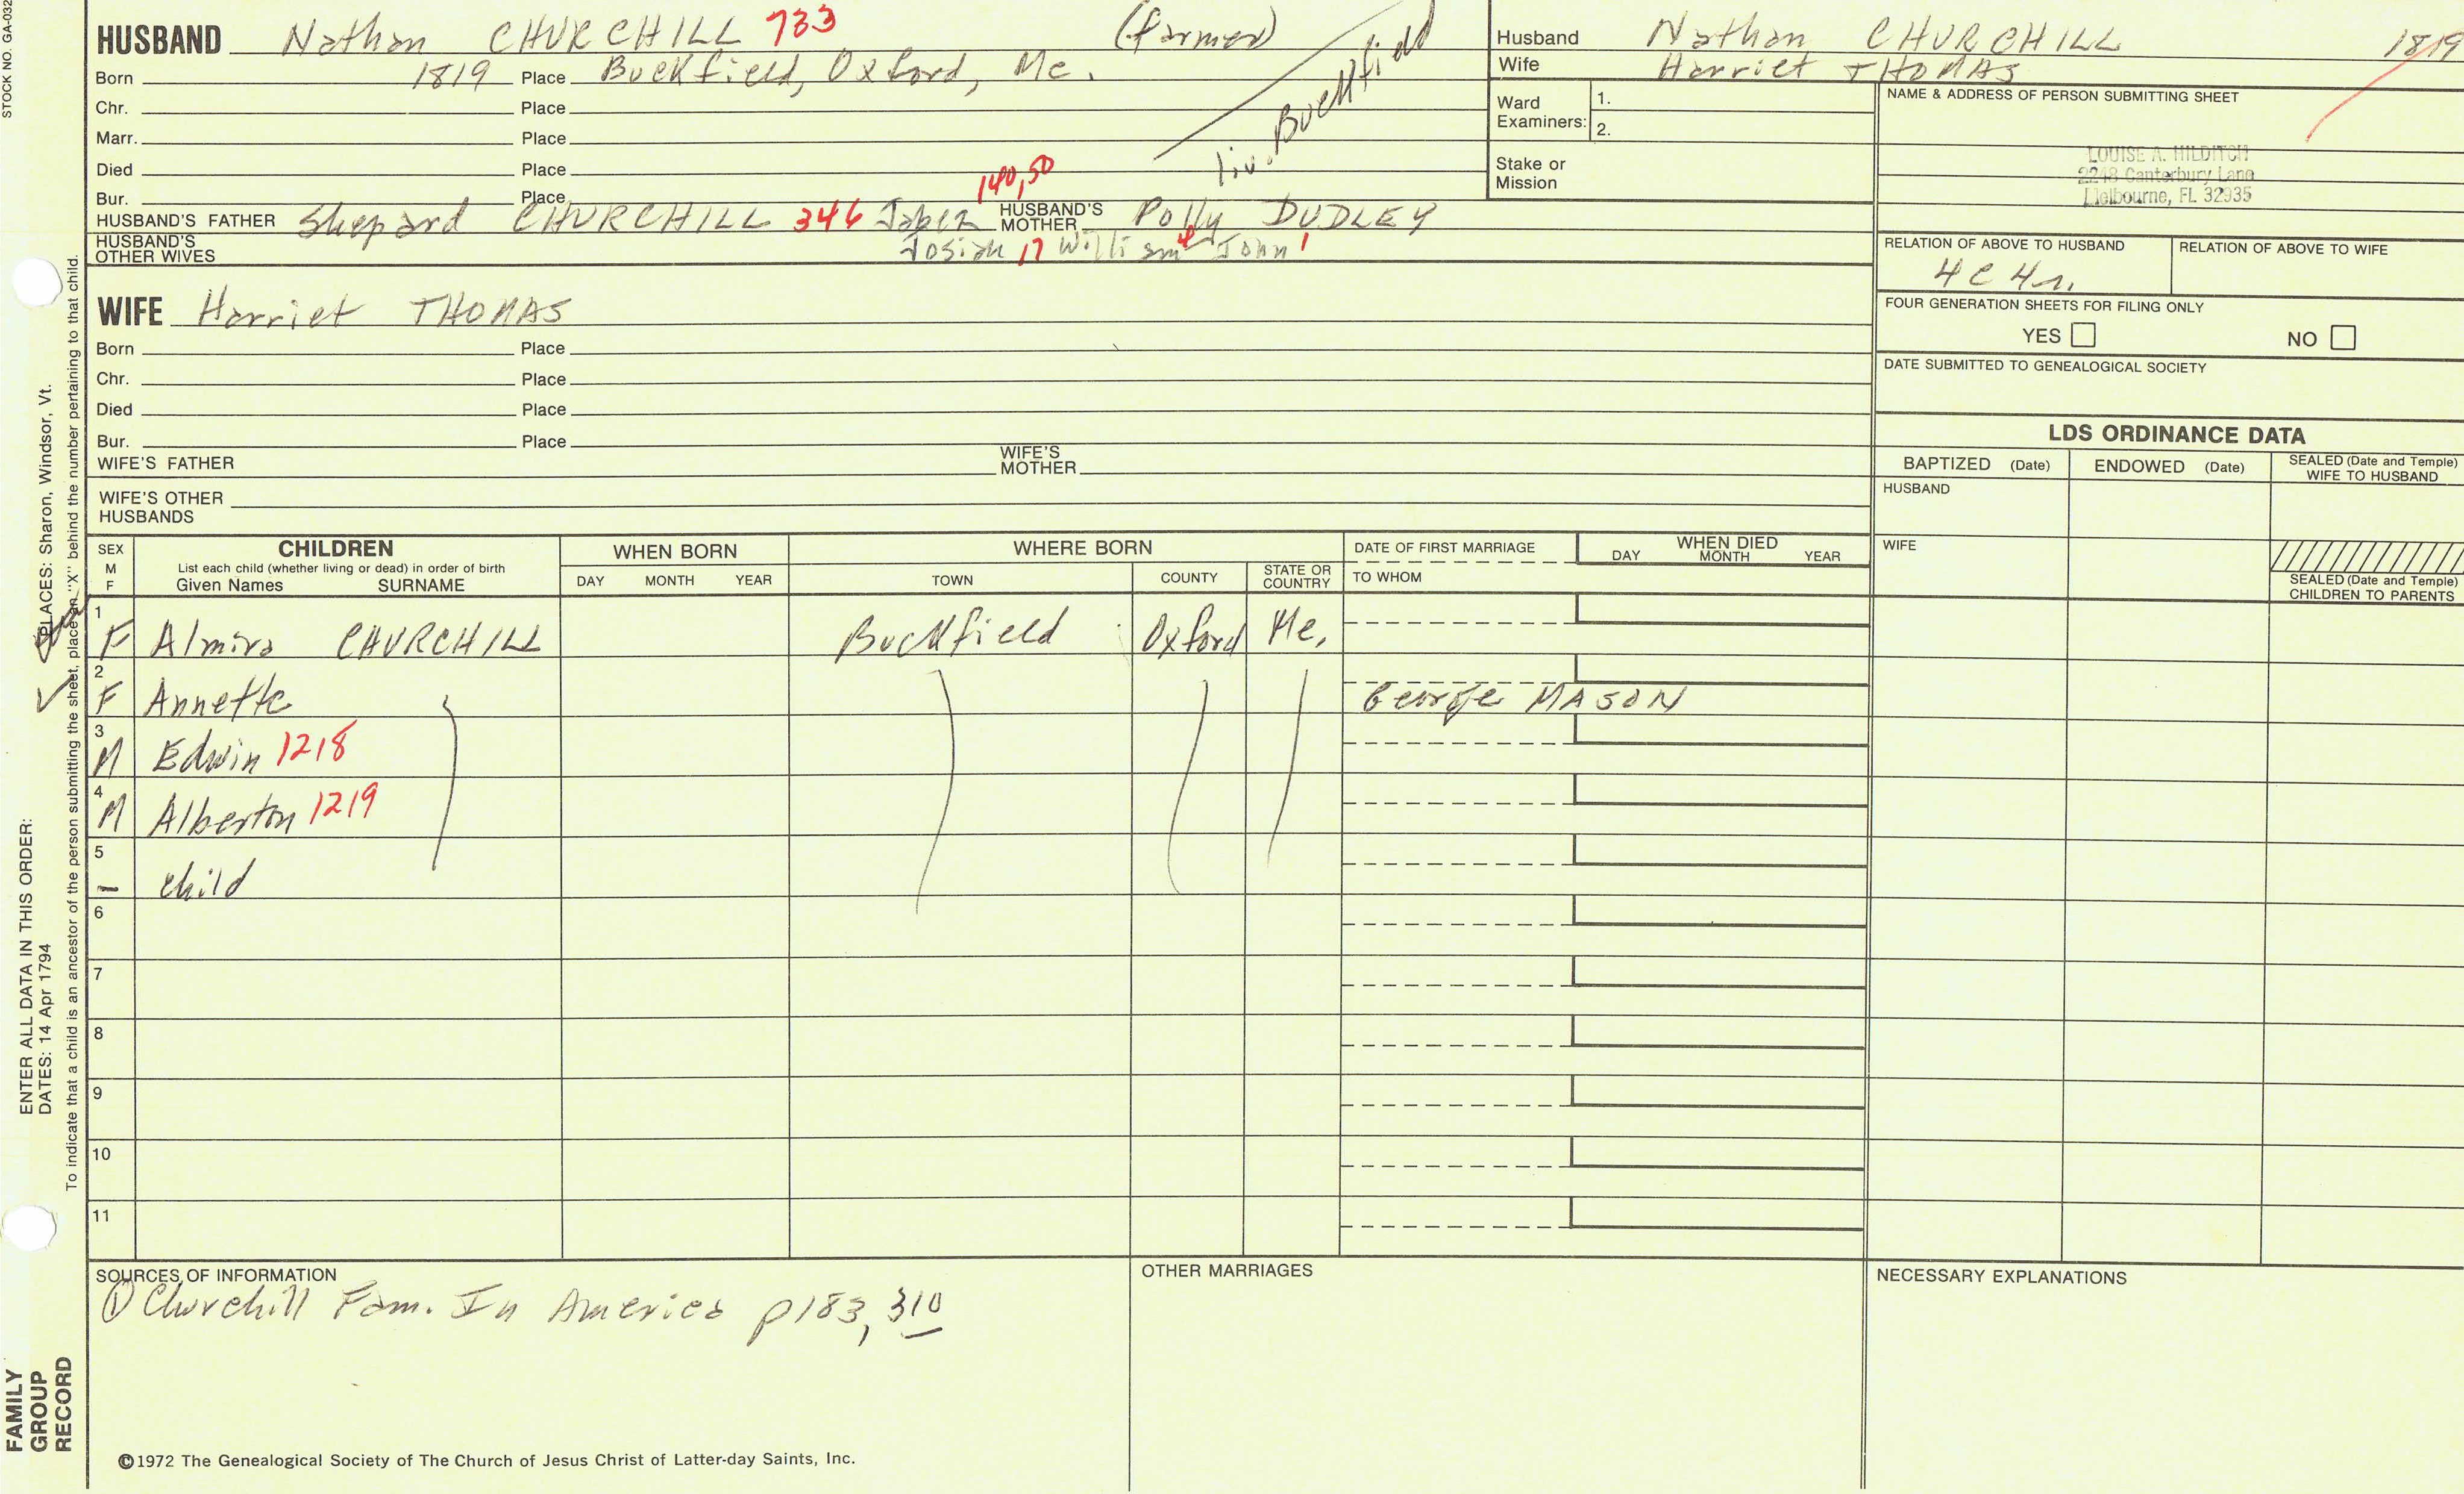 STOCK NO. GA-032
HUSBAND Nathan CHURCHILL 733 (farmer)
Born 1819 Place Buckfield, Oxford, Me.
liv. Buckfield
Chr. Place
Marr. Place
Died Place
Bur. Place
140,50
HUSBAND'S FATHER Shepard CHURCHILL 346 Jabez HUSBAND'S MOTHER Polly DUDLEY
HUSBAND'S OTHER WIVES Josiah 17 William 4 John 1
Husband Nathan CHURCHILL 1819
Wife Harriet THOMAS
Ward Examiners: 1.
2.
Stake or Mission
NAME & ADDRESS OF PERSON SUBMITTING SHEET
LOUISE A. HILDITCH
2248 Canterbury Lane
Melbourne, FL 32935
RELATION OF ABOVE TO HUSBAND RELATION OF ABOVE TO WIFE
4C4r.
FOUR GENERATION SHEETS FOR FILING ONLY
YES NO
DATE SUBMITTED TO GENEALOGICAL SOCIETY
WIFE Harriet THOMAS
Born Place
Chr. Place
Died Place
Bur. Place
WIFE'S FATHER WIFE'S MOTHER
WIFE'S OTHER HUSBANDS
LDS ORDINANCE DATA
BAPTIZED (Date) ENDOWED (Date) SEALED (Date and Temple) WIFE TO HUSBAND
HUSBAND
WIFE
SEALED (Date and Temple) CHILDREN TO PARENTS
SEX M F
CHILDREN
List each child (whether living or dead) in order of birth
Given Names SURNAME
WHEN BORN
DAY MONTH YEAR
WHERE BORN
TOWN COUNTY STATE OR COUNTRY
DATE OF FIRST MARRIAGE
TO WHOM
WHEN DIED
DAY MONTH YEAR
1 F Almira CHURCHILL Buckfield Oxford Me.
2 F Annette George MASON
3 M Edwin 1218
4 M Alberton 1219
5 - child
6
7
8
9
10
11
SOURCES OF INFORMATION
① Churchill Fam. In America p183, 310
OTHER MARRIAGES
NECESSARY EXPLANATIONS
©1972 The Genealogical Society of The Church of Jesus Christ of Latter-day Saints, Inc.
ENTER ALL DATA IN THIS ORDER:
DATES: 14 Apr 1794 PLACES: Sharon, Windsor, Vt.
To indicate that a child is an ancestor of the person submitting the sheet, place an "X" behind the number pertaining to that child.
FAMILY
GROUP
RECORD